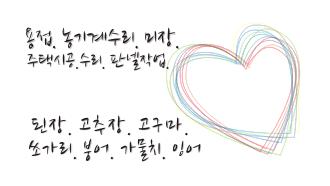 용접. 농기계수리. 미장.
주택시공.수리. 판넬작업.
된장. 고추장. 고구마.
쏘가리. 붕어. 가물치. 잉어